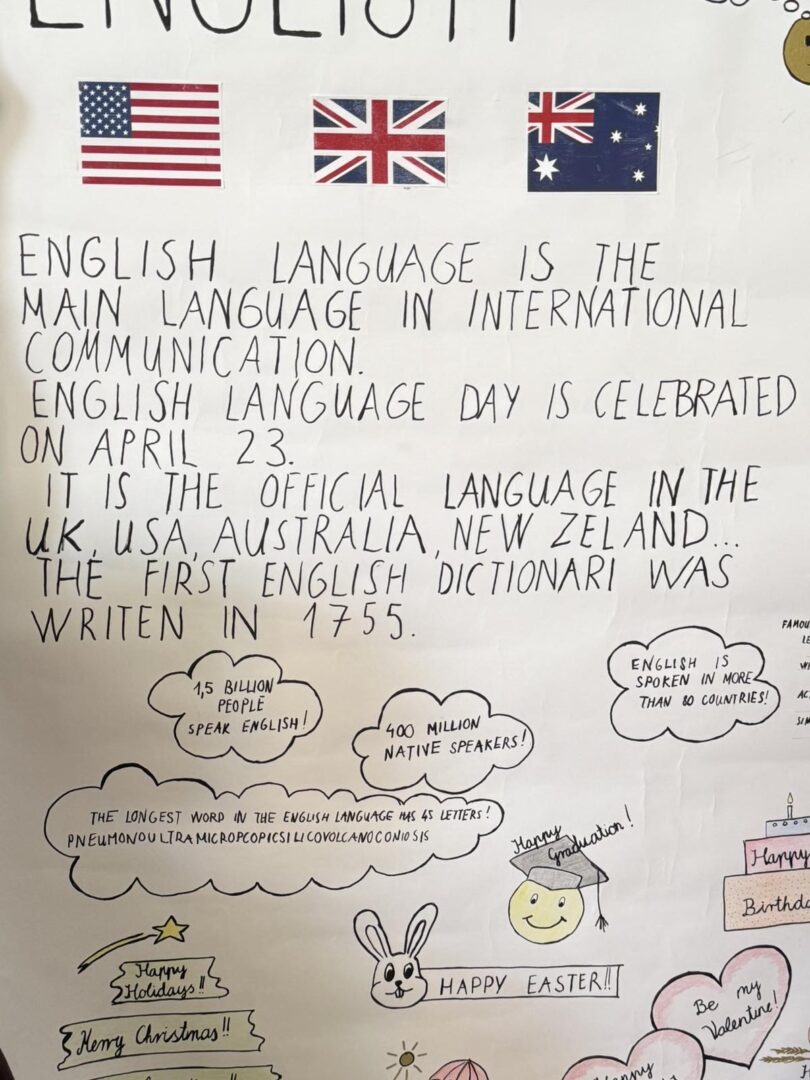 ENGLISH
ENGLISH LANGUAGE IS THE
MAIN LANGUAGE IN INTERNATIONAL
COMMUNICATION.
ENGLISH LANGUAGE DAY IS CELEBRATED
ON APRIL 23.
IT IS THE OFFICIAL LANGUAGE IN THE
UK, USA, AUSTRALIA, NEW ZELAND...
THE FIRST ENGLISH DICTIONARI WAS
WRITEN IN 1755.
1,5 BILLION
PEOPLE
SPEAK ENGLISH!
400 MILLION
NATIVE SPEAKERS!
ENGLISH IS
SPOKEN IN MORE
THAN 80 COUNTRIES!
THE LONGEST WORD IN THE ENGLISH LANGUAGE HAS 45 LETTERS!
PNEUMONOULTRAMICROPCOPICSILICOVOLCANOCONIOSIS
Happy
Graduation!
Happy
Birthda
Happy
Holidays!!
Merry Christmas!!
HAPPY EASTER!!
Be my
Valentine!
Happy